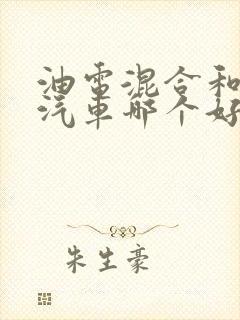 油电混合和
汽车哪个好
朱生豪